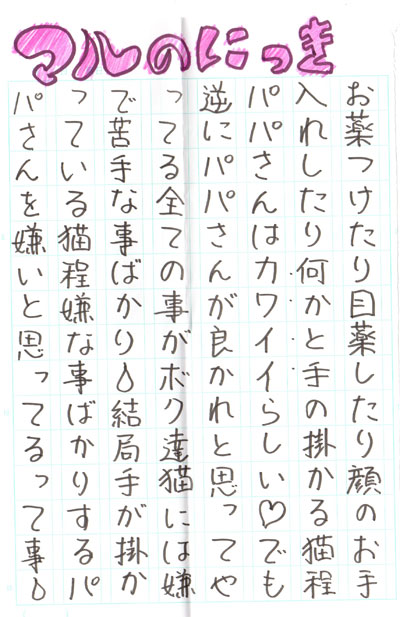 マルのにっき
お薬つけたり目薬したり顔のお手
入れしたり何かと手の掛かる猫程
パパさんはカワイイらしい♡でも
逆にパパさんが良かれと思ってや
ってる全ての事がボク達猫には嫌
で苦手な事ばかり💧結局手が掛か
っている猫程嫌な事ばかりするパ
パさんを嫌いと思ってるって事💧